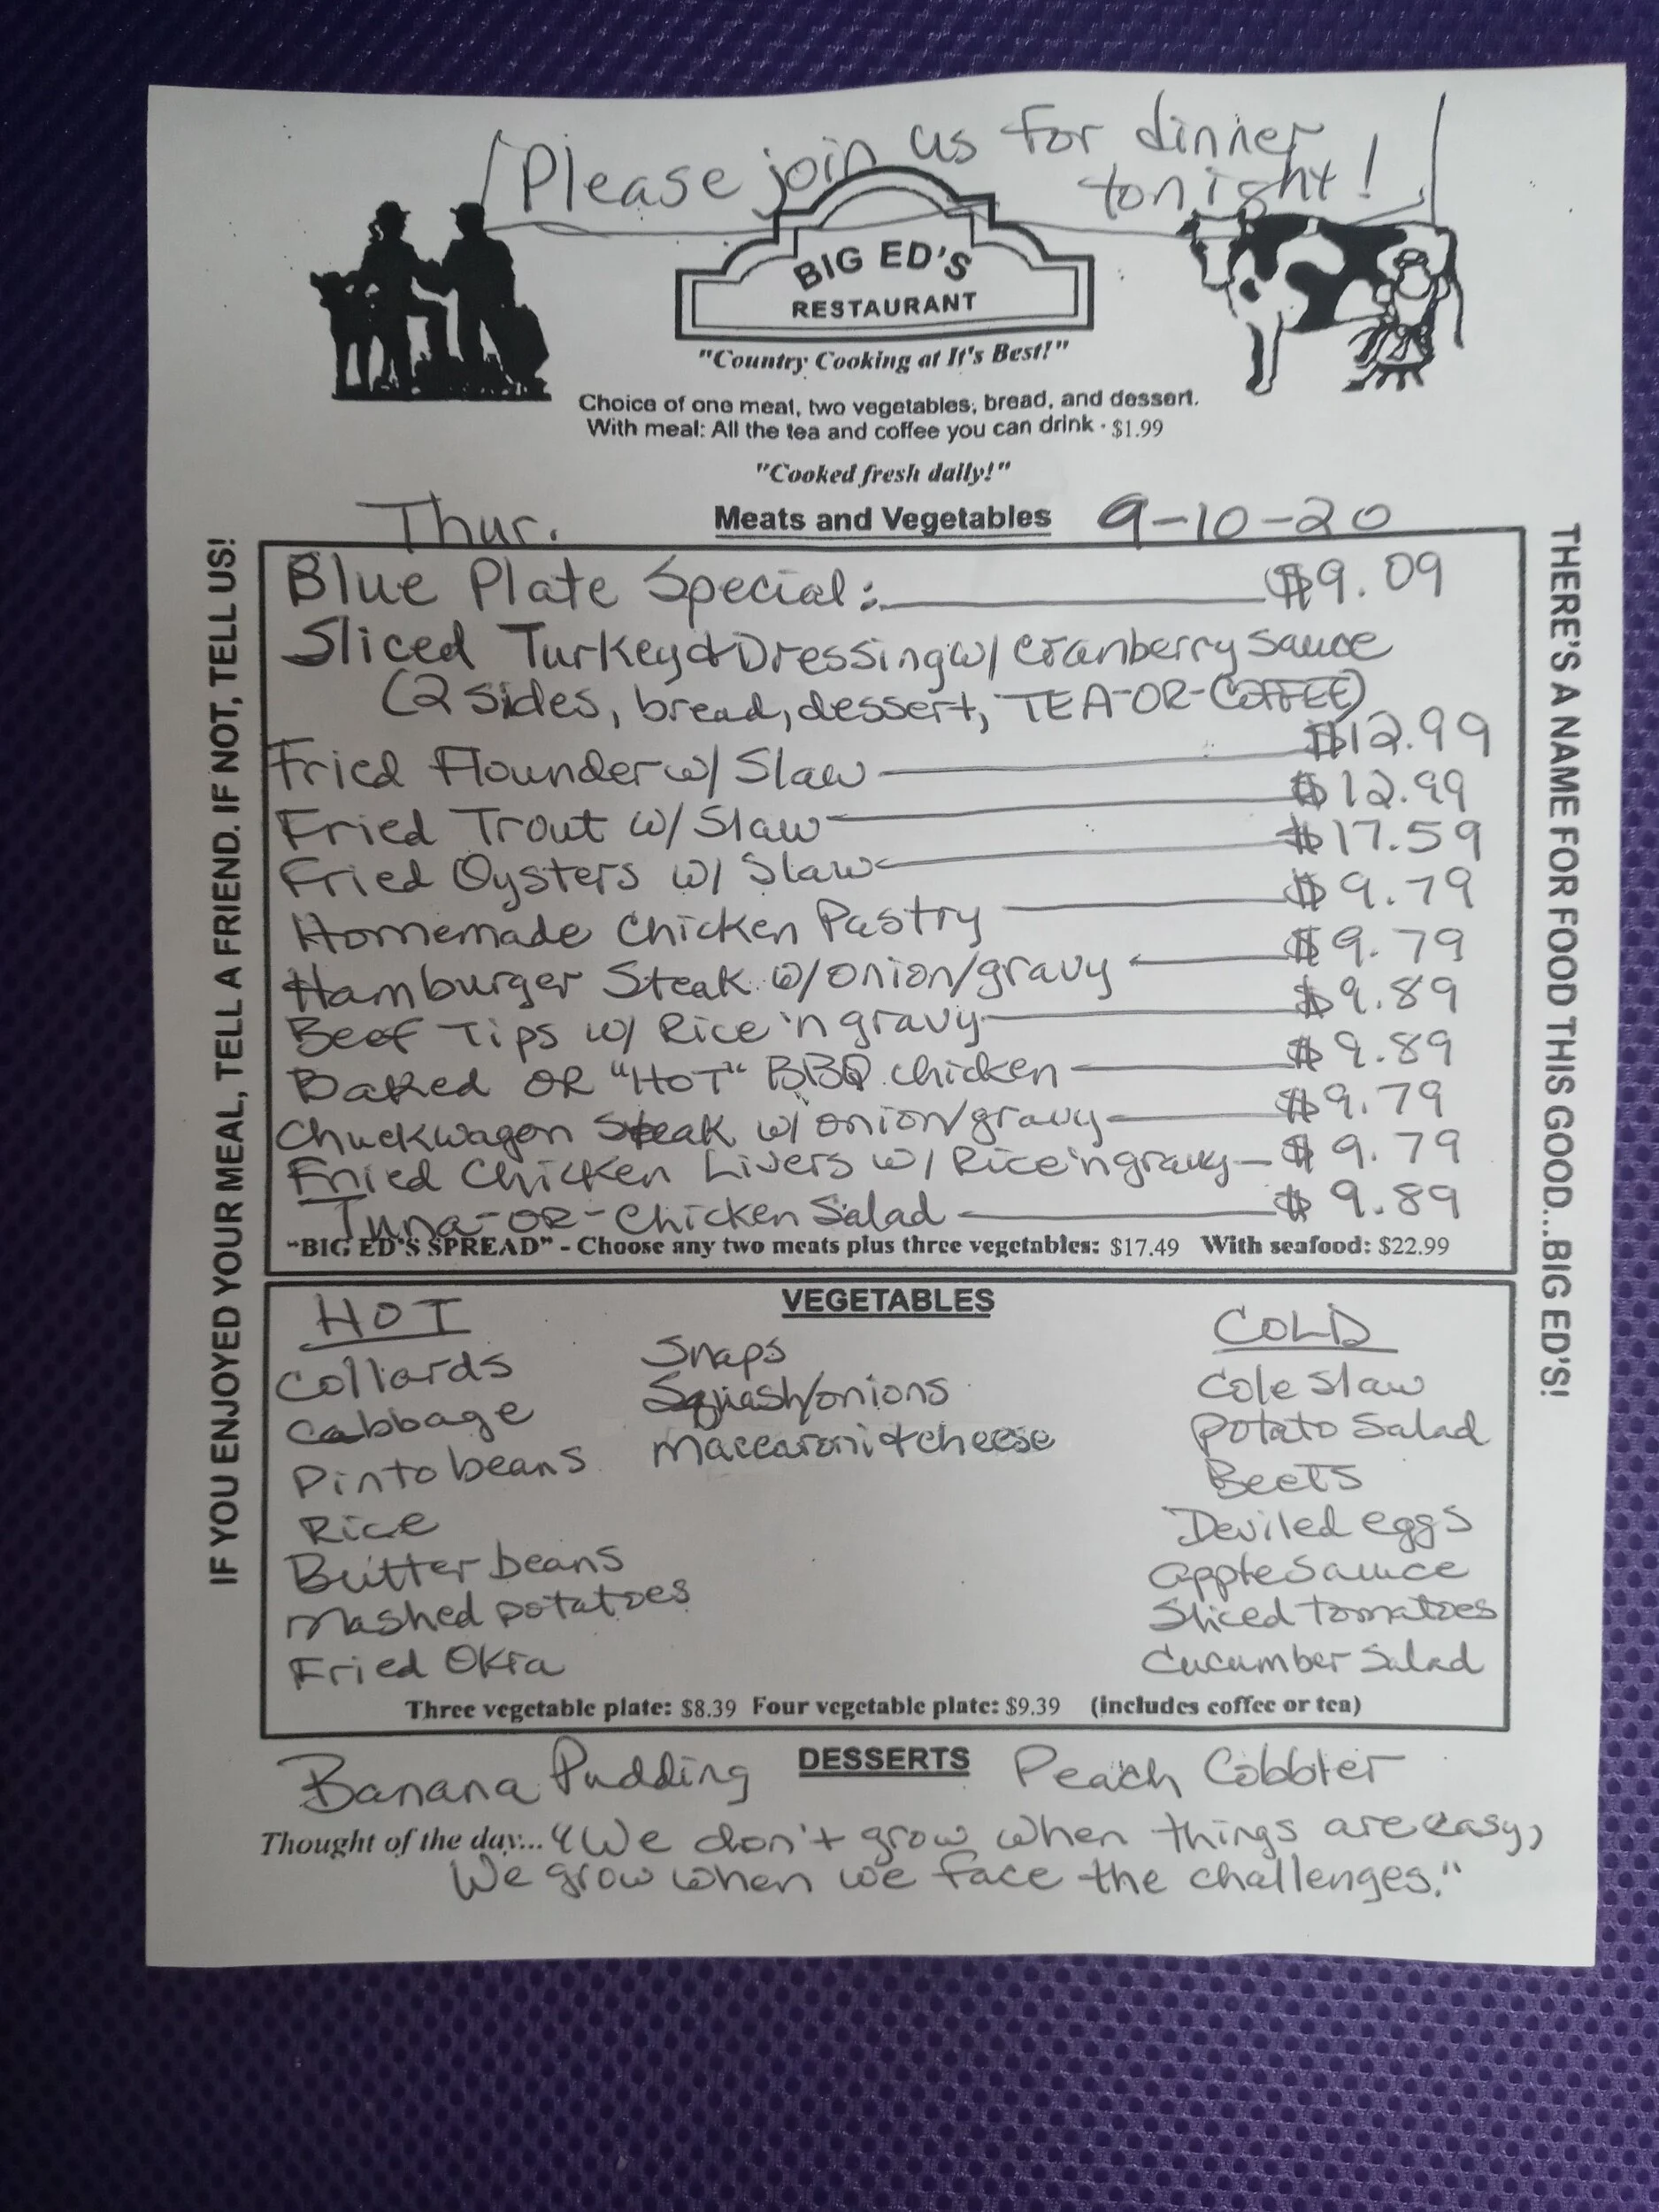 Please join us for dinner
tonight!
BIG ED'S
RESTAURANT
"Country Cooking at It's Best!"
Choice of one meat, two vegetables, bread, and dessert.
With meal: All the tea and coffee you can drink · $1.99
"Cooked fresh daily!"
Thur. Meats and Vegetables 9-10-20
IF YOU ENJOYED YOUR MEAL, TELL A FRIEND. IF NOT, TELL US!
Blue Plate Special: $9.09
Sliced Turkey & Dressing w/ Cranberry Sauce
(2 sides, bread, dessert, TEA-OR-COFFEE)
Fried Flounder w/ Slaw $12.99
Fried Trout w/ Slaw $12.99
Fried Oysters w/ Slaw $17.59
Homemade Chicken Pastry $9.79
Hamburger Steak w/ onion/gravy $9.79
Beef Tips w/ Rice 'n gravy $9.89
Baked OR "HOT" BBQ chicken $9.89
Chuckwagon Steak w/ onion/gravy $9.79
Fried Chicken Livers w/ Rice 'n gravy $9.79
Tuna-OR-Chicken Salad $9.89
"BIG ED'S SPREAD" - Choose any two meats plus three vegetables: $17.49 With seafood: $22.99
THERE'S A NAME FOR FOOD THIS GOOD...BIG ED'S!
VEGETABLES
HOT
Collards
Cabbage
Pinto beans
Rice
Butter beans
Mashed potatoes
Fried Okra
Snaps
Squash/onions
Maccaroni & cheese
COLD
Cole Slaw
Potato Salad
Beets
Deviled eggs
Applesauce
Sliced tomatoes
Cucumber Salad
Three vegetable plate: $8.39 Four vegetable plate: $9.39 (includes coffee or tea)
DESSERTS
Banana Pudding Peach Cobbler
Thought of the day... "We don't grow when things are easy,
We grow when we face the challenges."